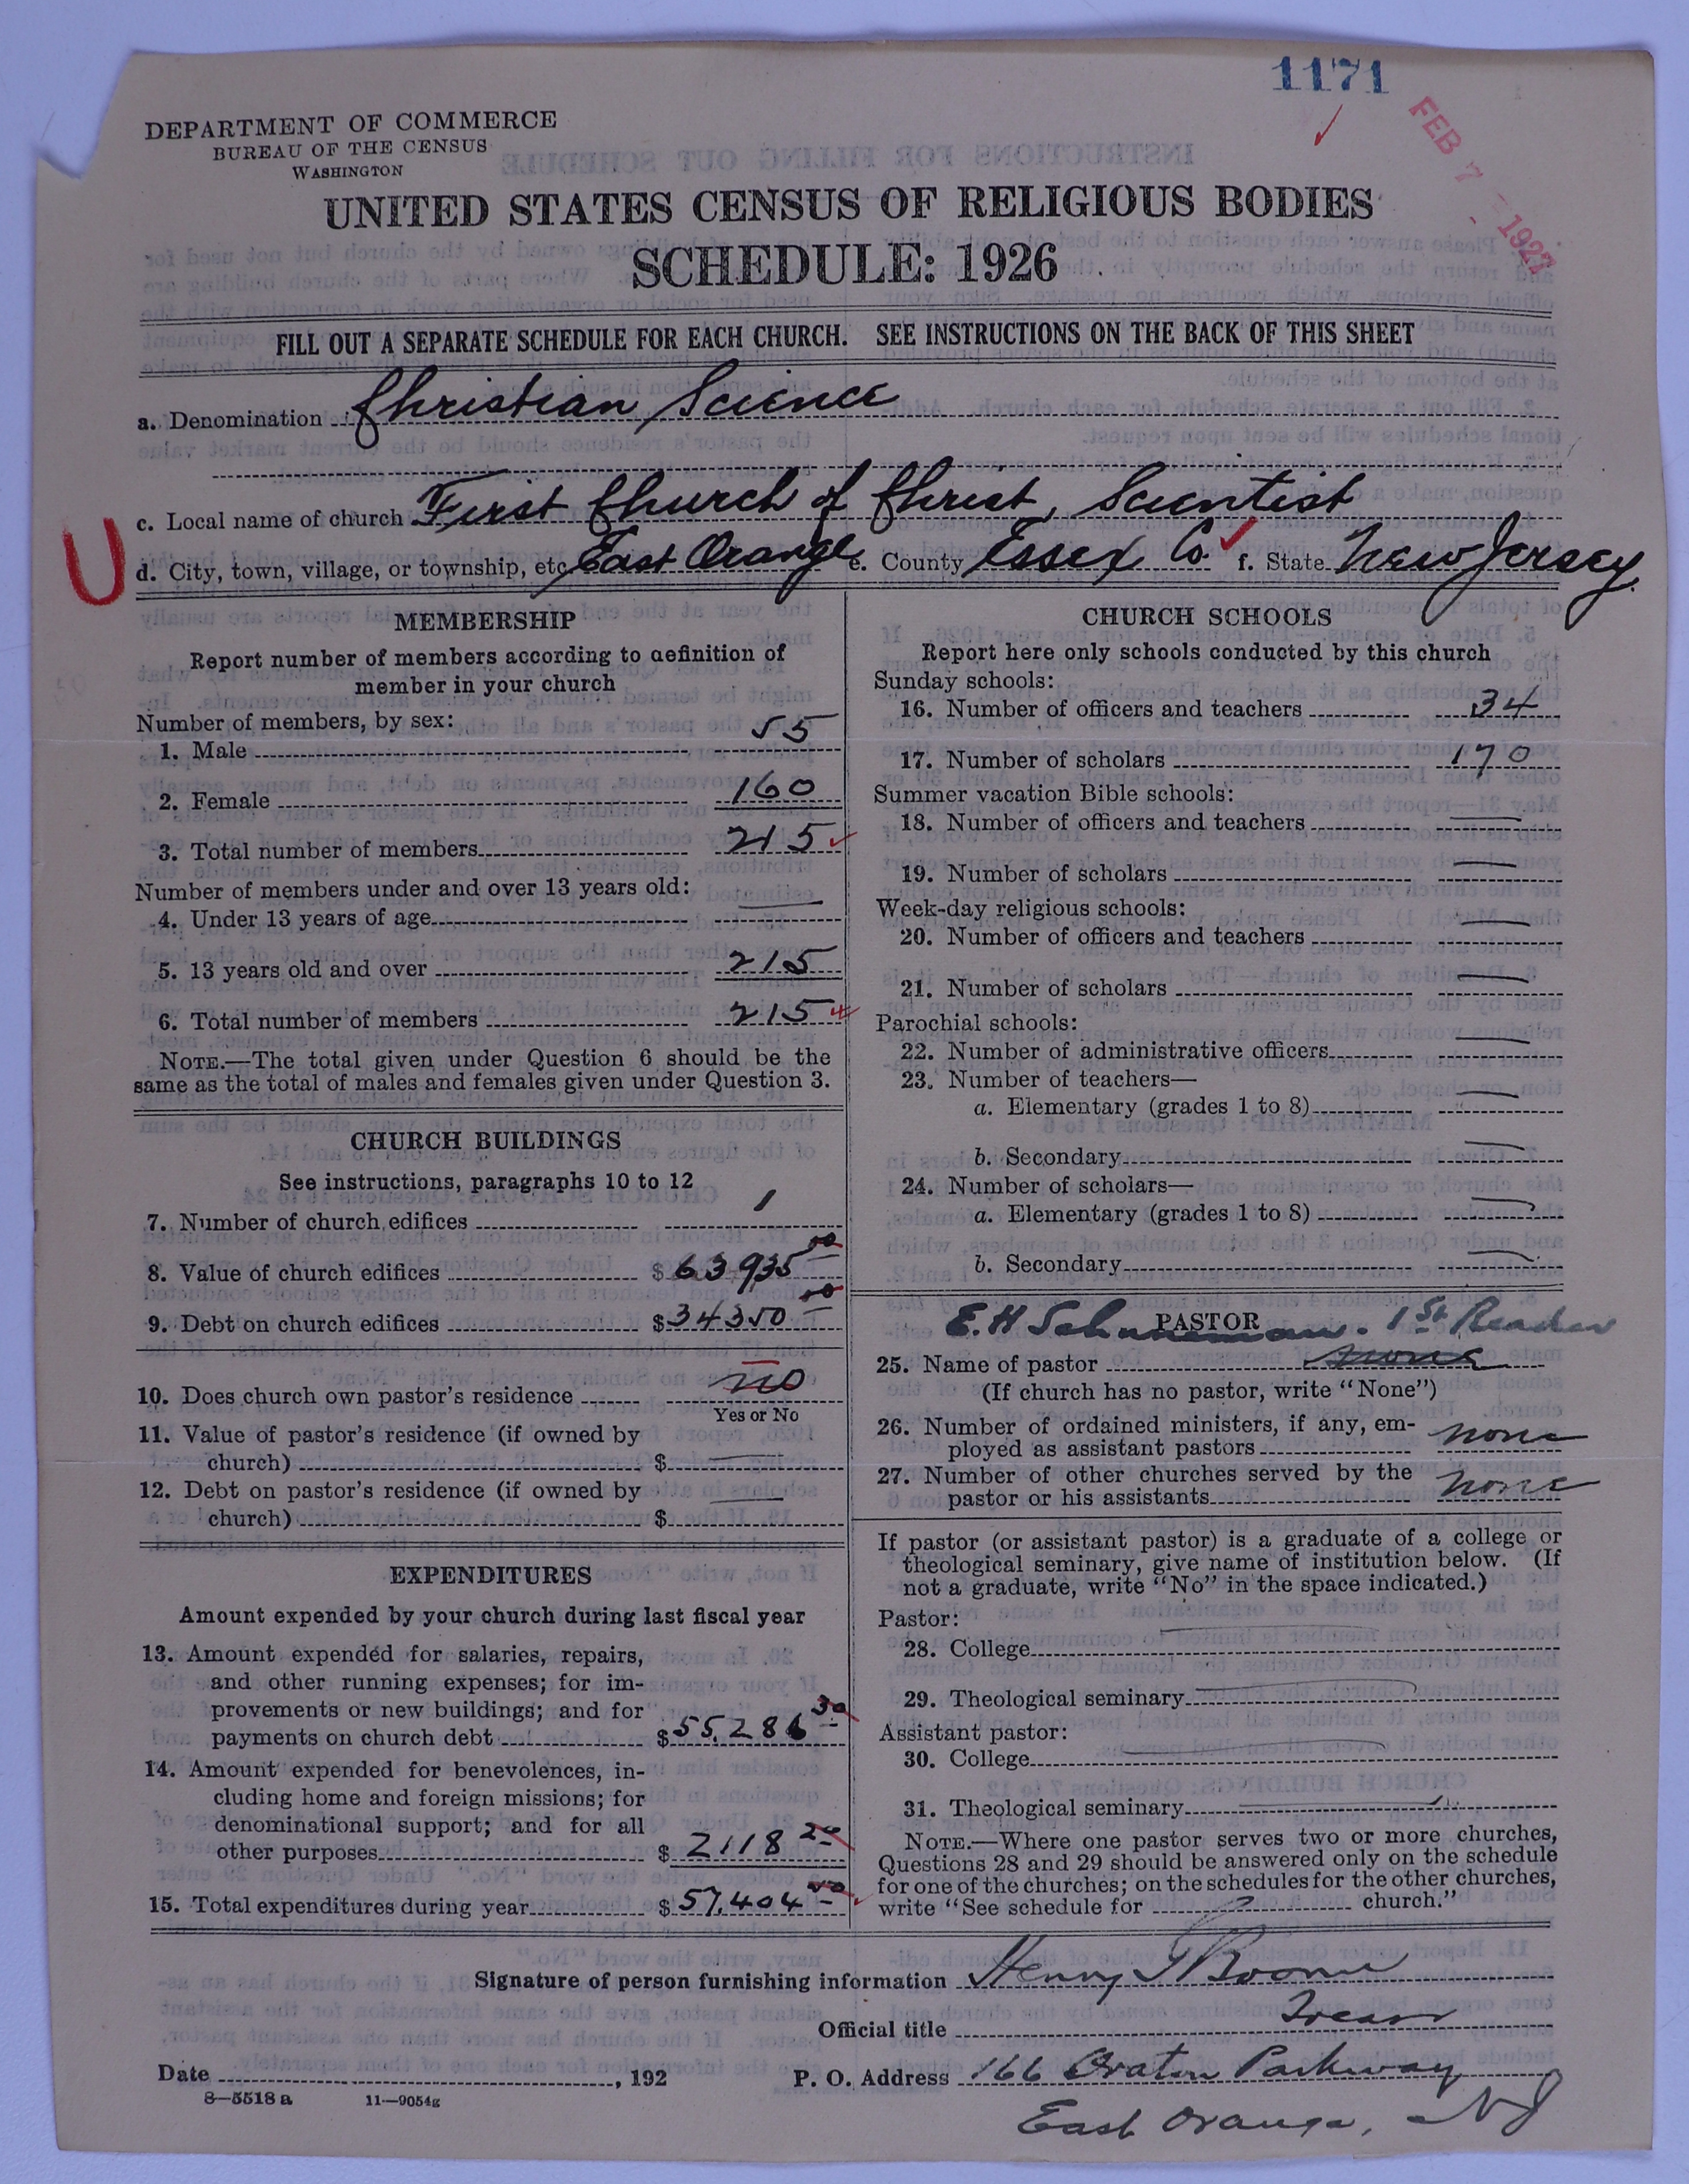 1171
FEB 7 - 1927
DEPARTMENT OF COMMERCE
BUREAU OF THE CENSUS
WASHINGTON
UNITED STATES CENSUS OF RELIGIOUS BODIES
SCHEDULE: 1926
FILL OUT A SEPARATE SCHEDULE FOR EACH CHURCH. SEE INSTRUCTIONS ON THE BACK OF THIS SHEET
a. Denomination Christian Science
c. Local name of church First Church of Christ, Scientist
U
d. City, town, village, or township, etc East Orange e. County Essex Co f. State New Jersey
MEMBERSHIP
Report number of members according to definition of
member in your church
Number of members, by sex:
1. Male 55
2. Female 160
3. Total number of members 215
Number of members under and over 13 years old:
4. Under 13 years of age —
5. 13 years old and over 215
6. Total number of members 215
NOTE.—The total given under Question 6 should be the
same as the total of males and females given under Question 3.
CHURCH BUILDINGS
See instructions, paragraphs 10 to 12
7. Number of church edifices 1
8. Value of church edifices $63935 00
9. Debt on church edifices $34350 00
10. Does church own pastor's residence no
Yes or No
11. Value of pastor's residence (if owned by
church) $ —
12. Debt on pastor's residence (if owned by
church) $ —
EXPENDITURES
Amount expended by your church during last fiscal year
13. Amount expended for salaries, repairs,
and other running expenses; for im-
provements or new buildings; and for
payments on church debt $55,286 30
14. Amount expended for benevolences, in-
cluding home and foreign missions; for
denominational support; and for all
other purposes $2118 20
15. Total expenditures during year $57,404 50
CHURCH SCHOOLS
Report here only schools conducted by this church
Sunday schools:
16. Number of officers and teachers 34
17. Number of scholars 170
Summer vacation Bible schools:
18. Number of officers and teachers —
19. Number of scholars —
Week-day religious schools:
20. Number of officers and teachers —
21. Number of scholars —
Parochial schools:
22. Number of administrative officers —
23. Number of teachers—
a. Elementary (grades 1 to 8) —
b. Secondary —
24. Number of scholars—
a. Elementary (grades 1 to 8) —
b. Secondary —
PASTOR
E. H Schuneman. 1st Reader
25. Name of pastor none
(If church has no pastor, write "None")
26. Number of ordained ministers, if any, em-
ployed as assistant pastors none
27. Number of other churches served by the
pastor or his assistants none
If pastor (or assistant pastor) is a graduate of a college or
theological seminary, give name of institution below. (If
not a graduate, write "No" in the space indicated.)
Pastor:
28. College —
29. Theological seminary —
Assistant pastor:
30. College —
31. Theological seminary —
NOTE.—Where one pastor serves two or more churches,
Questions 28 and 29 should be answered only on the schedule
for one of the churches; on the schedules for the other churches,
write "See schedule for church."
Signature of person furnishing information Henry
Official title Treas
Date , 192
P. O. Address 166 Parkway
East Orange, NJ
8—5518 a 11—9054g